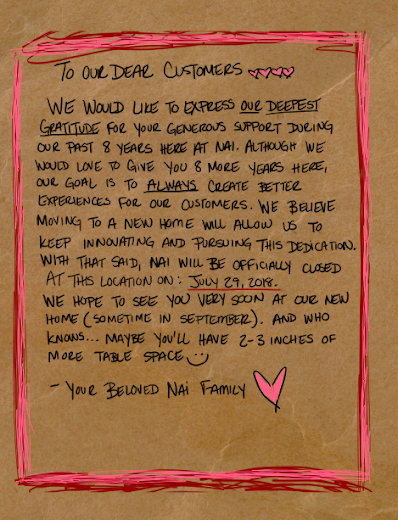 TO OUR DEAR CUSTOMERS
WE WOULD LIKE TO EXPRESS OUR DEEPEST
GRATITUDE FOR YOUR GENEROUS SUPPORT DURING
OUR PAST 8 YEARS HERE AT NAI. ALTHOUGH WE
WOULD LOVE TO GIVE YOU 8 MORE YEARS HERE,
OUR GOAL IS TO ALWAYS CREATE BETTER
EXPERIENCES FOR OUR CUSTOMERS. WE BELIEVE
MOVING TO A NEW HOME WILL ALLOW US TO
KEEP INNOVATING AND PURSUING THIS DEDICATION.
WITH THAT SAID, NAI WILL BE OFFICIALLY CLOSED
AT THIS LOCATION ON: JULY 29, 2018.
WE HOPE TO SEE YOU VERY SOON AT OUR NEW
HOME (SOMETIME IN SEPTEMBER). AND WHO
KNOWS... MAYBE YOU'LL HAVE 2-3 INCHES OF
MORE TABLE SPACE
- YOUR BELOVED NAI FAMILY